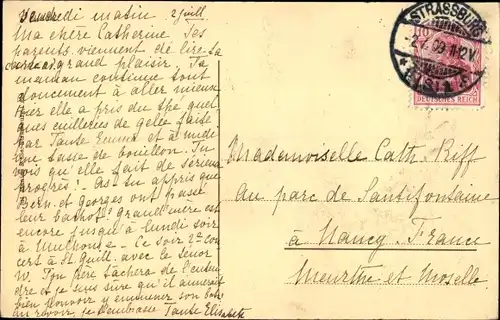 Vendredi matin 2 juill.
Ma chère Catherine Tes
parents viennent de lire ta
carte à grand plaisir. Ta
maman continue tout
doucement à aller mieux
hier elle a pris du thé quel
ques cuillerées de gelée faite
par Tante Emma et à midi
une tasse de bouillon. Tu
vois qu'elle fait de sérieux
progrès! As tu appris que
Bern. et Georges ont passé
leur bachot? Grand'mère est
encore jusqu'à lundi soir
à Mulhouse - Ce soir 2e con
cert à St. Guill. avec le tenor
W. Ton père tâchera de l'enten
dre et je suis sûre qu'il aimerait
bien pouvoir y emmener son
au revoir, je t'embrasse Tante Elisabeth
STRASSBURG
2.7.09.11-12V.
* (ELS) 1
DEUTSCHES REICH
Mademoiselle Cath. Riff
au parc de Santifontaine
à Nancy. France
Meurthe et Moselle.